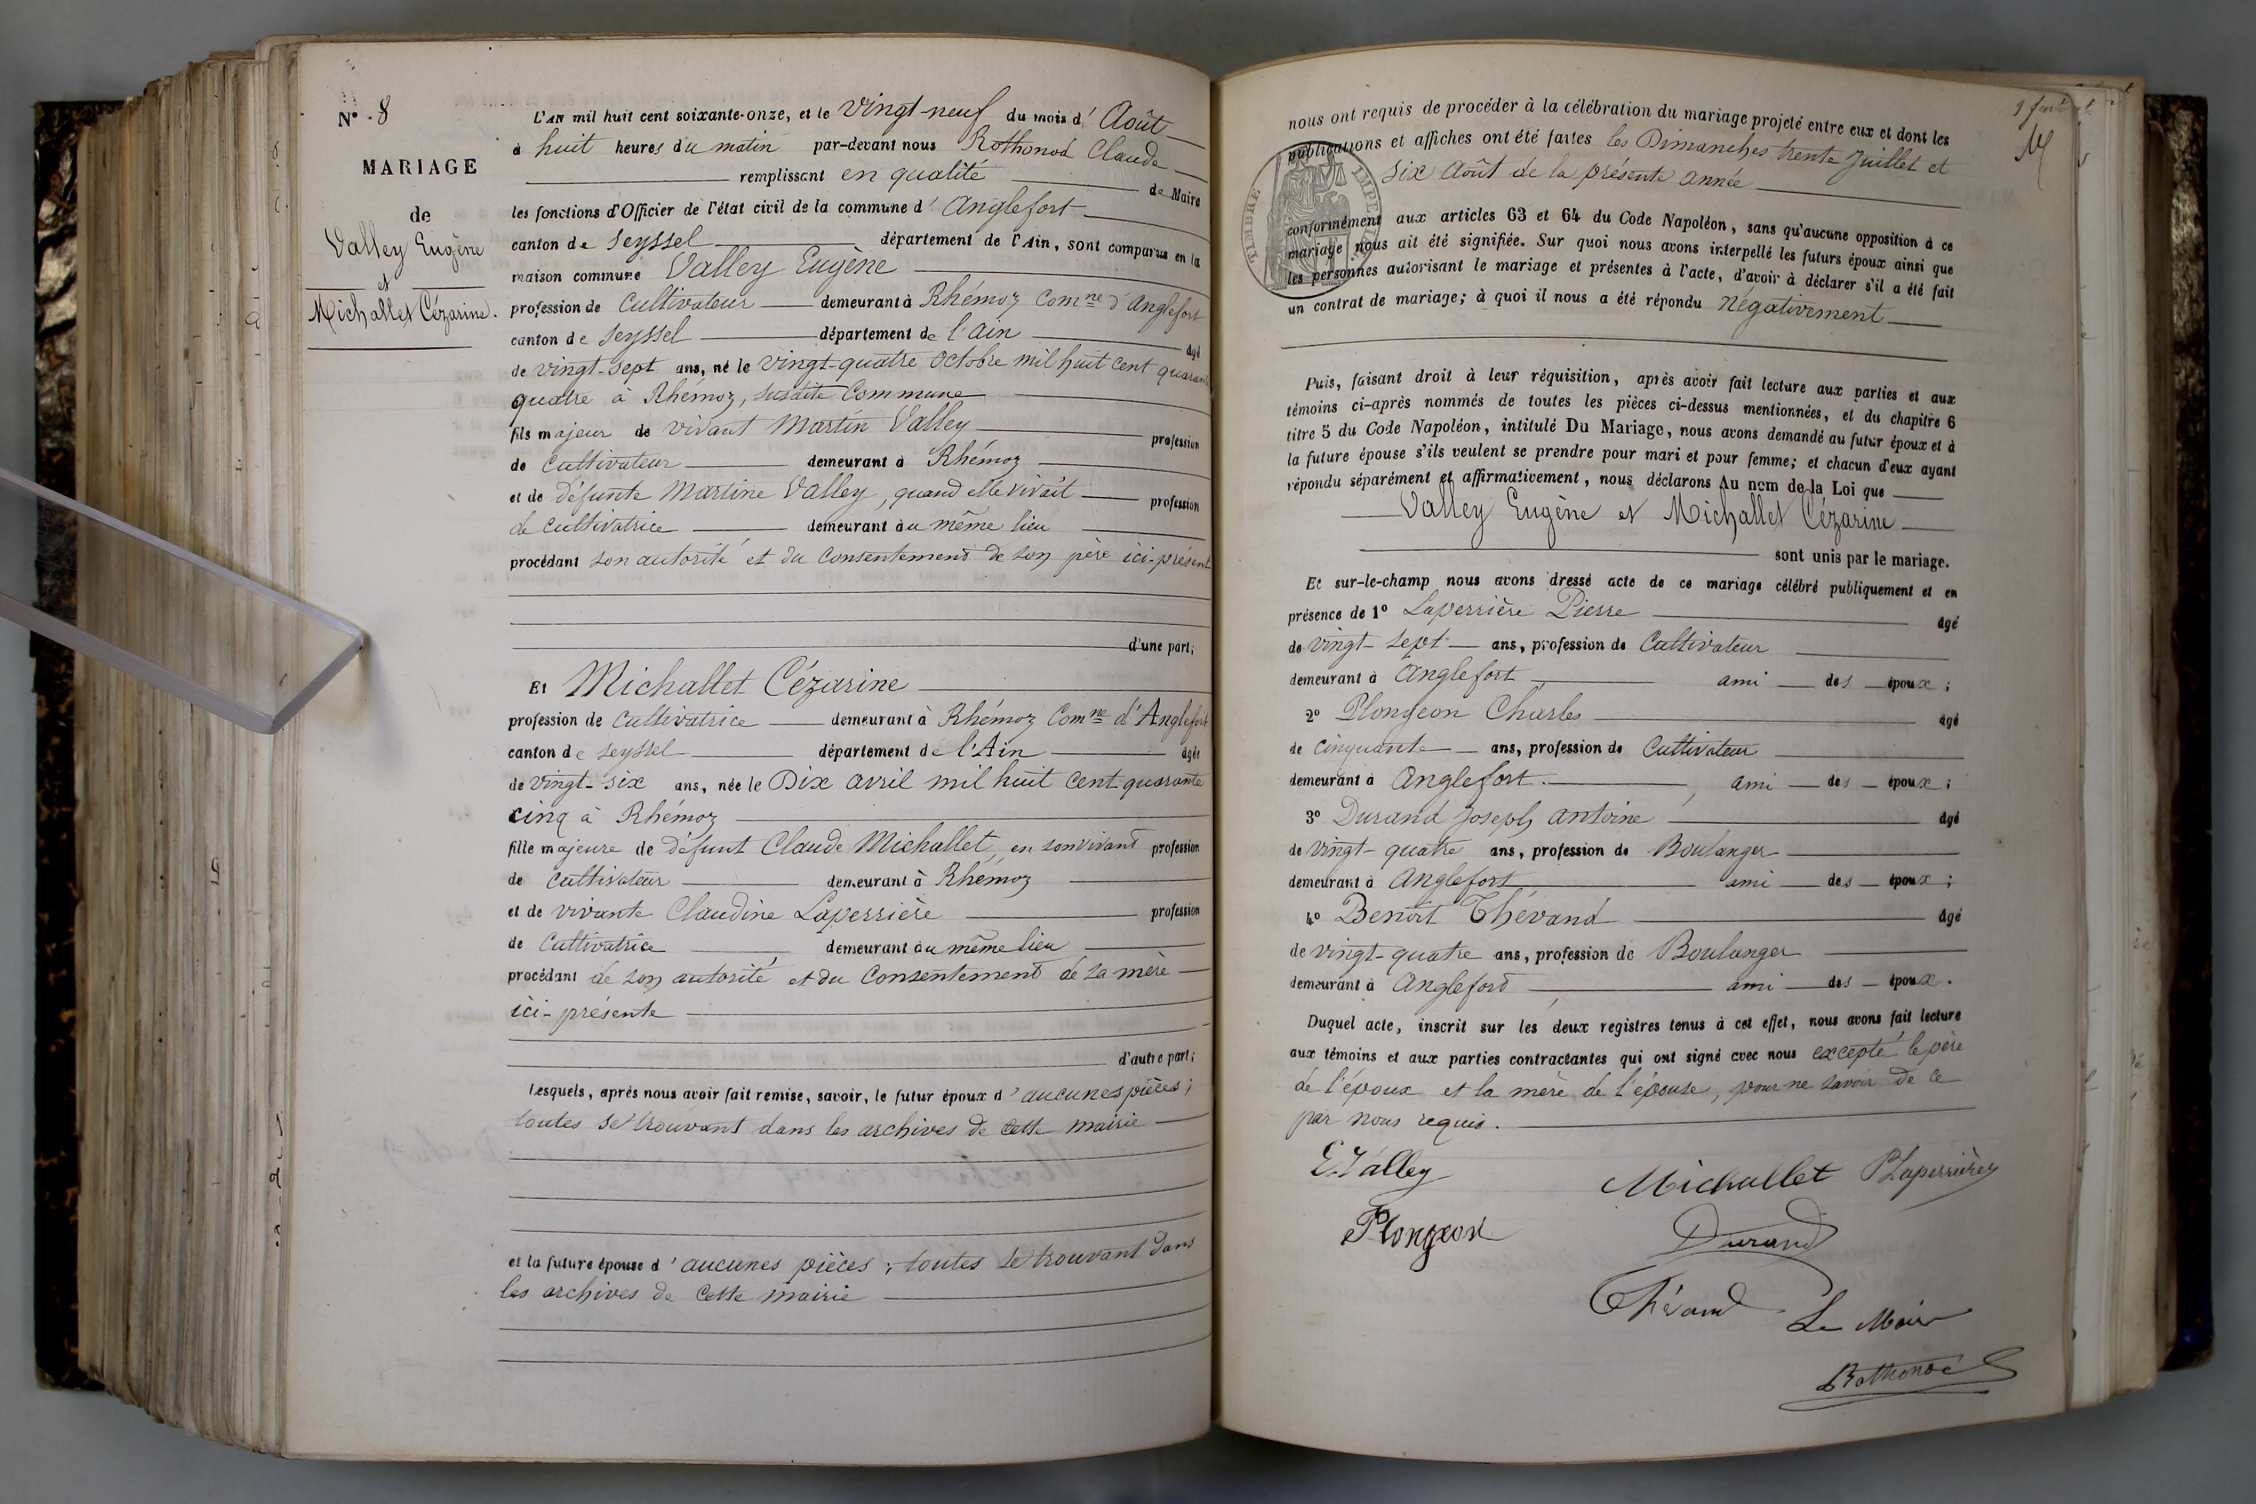 N° 8
MARIAGE
de
Valley Eugène
et
Michallet Cézarine.
L'AN mil huit cent soixante-onze, et le vingt-neuf du mois d' Août
à huit heures du matin par-devant nous Rothonod Claude
remplissant en qualité de Maire
les fonctions d'Officier de l'état civil de la commune d' Anglefort
canton de Seyssel département de l'Ain, sont comparus en la
maison commune Valley Eugène
profession de Cultivateur demeurant à Rhémoz Comne d'Anglefort
canton de Seyssel département de l'Ain âgé
de vingt-sept ans, né le vingt-quatre Octobre mil huit cent quarante
quatre à Rhémoz, susdite Commune
fils majeur de vivant Martin Valley profession
de cultivateur demeurant à Rhémoz
et de défunte Martine Valley, quand elle vivait profession
de cultivatrice demeurant au même lieu
procédant son autorité et du consentement de son père ici-présent
d'une part;
Et Michallet Cézarine
profession de Cultivatrice demeurant à Rhémoz Comne d'Anglefort
canton de Seyssel département de l'Ain âgée
de vingt-six ans, née le Dix avril mil huit cent quarante
cinq à Rhémoz
fille majeure de défunt Claude Michallet, en son vivant profession
de cultivateur demeurant à Rhémoz
et de vivante Claudine Laperrière profession
de Cultivatrice demeurant au même lieu
procédant de son autorité et du consentement de sa mère
ici-présente
d'autre part;
Lesquels, après nous avoir fait remise, savoir, le futur époux d'aucunes pièces;
toutes se trouvant dans les archives de cette mairie
et la future épouse d'aucunes pièces; toutes se trouvant dans
les archives de cette mairie
nous ont requis de procéder à la célébration du mariage projeté entre eux et dont les
publications et affiches ont été faites les Dimanches trente Juillet et
six Août de la présente année
TIMBRE IMPE
conformément aux articles 63 et 64 du Code Napoléon, sans qu'aucune opposition à ce
mariage nous ait été signifiée. Sur quoi nous avons interpellé les futurs époux ainsi que
les personnes autorisant le mariage et présentes à l'acte, d'avoir à déclarer s'il a été fait
un contrat de mariage; à quoi il nous a été répondu négativement
Puis, faisant droit à leur réquisition, après avoir fait lecture aux parties et aux
témoins ci-après nommés de toutes les pièces ci-dessus mentionnées, et du chapitre 6
titre 5 du Code Napoléon, intitulé Du Mariage, nous avons demandé au futur époux et à
la future épouse s'ils veulent se prendre pour mari et pour femme; et chacun d'eux ayant
répondu séparément et affirmativement, nous déclarons Au nom de la Loi que
Valley Eugène et Michallet Cézarine
sont unis par le mariage.
Et sur-le-champ nous avons dressé acte de ce mariage célébré publiquement et en
présence de 1° Laperrière Pierre âgé
de vingt-sept ans, profession de Cultivateur
demeurant à Anglefort ami des époux;
2° Plongeon Charles âgé
de cinquante ans, profession de Cultivateur
demeurant à Anglefort. ami des époux;
3° Durand Joseph Antoine âgé
de vingt-quatre ans, profession de Boulanger
demeurant à Anglefort ami des époux;
4° Benoît Thévand âgé
de vingt-quatre ans, profession de Boulanger
demeurant à Anglefort ami des époux.
Duquel acte, inscrit sur les deux registres tenus à cet effet, nous avons fait lecture
aux témoins et aux parties contractantes qui ont signé avec nous excepté le père
de l'époux et la mère de l'épouse, pour ne savoir de ce
par nous requis.
E. Valley
Michallet PLaperrière
Plongeon
Durand
Thévand
Le Maire
Rothonod